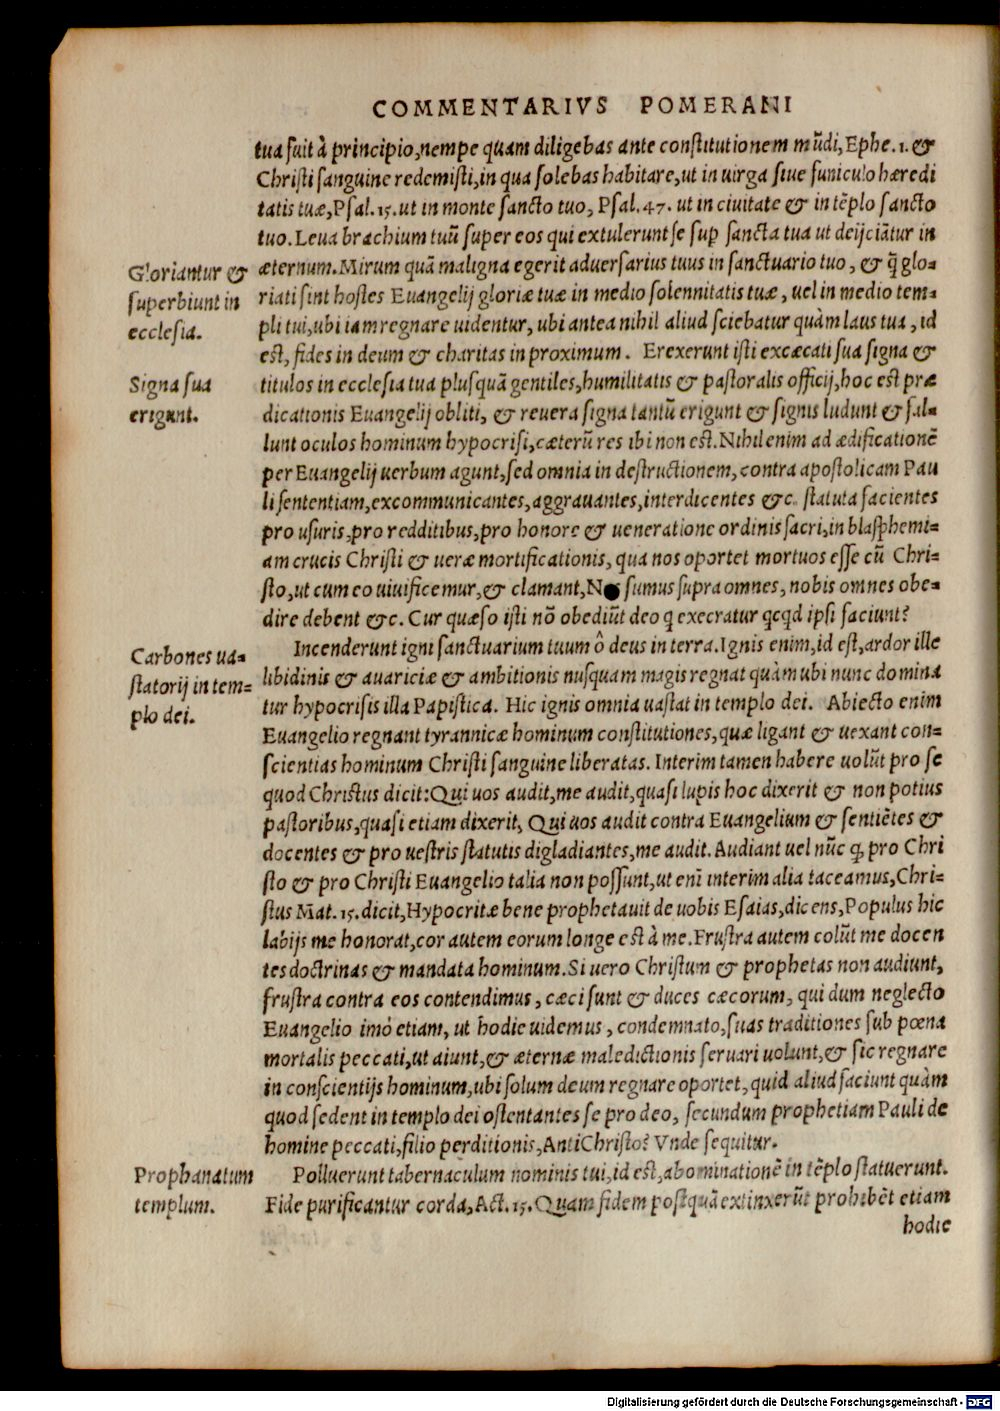 COMMENTARIVS POMERANI
tua fuit à principio, nempe quam diligebas ante constitutionem mũdi, Ephe. 1. &
Christi sanguine redemisti, in qua solebas habitare, ut in uirga siue funiculo hæredi
tatis tuæ, Psal. 15. ut in monte sancto tuo, Psal. 47. ut in ciuitate & in tẽplo sancto
tuo. Leua brachium tuũ super eos qui extulerunt se sup sancta tua ut deijciãtur in
Gloriantur &
superbiunt in
ecclesia.
æternum. Mirum quã maligna egerit aduersarius tuus in sanctuario tuo, & q̃ glo=
riati sint hostes Euangelij gloriæ tuæ in medio solennitatis tuæ, uel in medio tem=
pli tui, ubi iam regnare uidentur, ubi antea nihil aliud sciebatur quàm laus tua, id
est, fides in deum & charitas in proximum. Erexerunt isti excæcati sua signa &
Signa sua
erigunt.
titulos in ecclesia tua plusquã gentiles, humilitatis & pastoralis officij, hoc est præ
dicationis Euangelij obliti, & reuera signa tantũ erigunt & signis ludunt & fal=
lunt oculos hominum hypocrisi, cæterũ res ibi non est. Nihil enim ad ædificationẽ
per Euangelij uerbum agunt, sed omnia in destructionem, contra apostolicam Pau
li sententiam, excommunicantes, aggrauantes, interdicentes &c. statuta facientes
pro usuris, pro redditibus, pro honore & ueneratione ordinis sacri, in blasphemi=
am crucis Christi & ueræ mortificationis, qua nos oportet mortuos esse cũ Chri=
sto, ut cum eo uiuificemur, & clamant, sumus supra omnes, nobis omnes obe=
dire debent &c. Cur quæso isti nõ obediũt deo q execratur qcqd ipsi faciunt?
Carbones ua=
statorij in tem=
plo dei.
Incenderunt igni sanctuarium tuum ô deus in terra. Ignis enim, id est, ardor ille
libidinis & auariciæ & ambitionis nusquam magis regnat quàm ubi nunc domina
tur hypocrisis illa Papistica. Hic ignis omnia uastat in templo dei. Abiecto enim
Euangelio regnant tyrannicæ hominum constitutiones, quæ ligant & uexant con=
scientias hominum Christi sanguine liberatas. Interim tamen habere uolũt pro se
quod Christus dicit: Qui uos audit, me audit, quasi lupis hoc dixerit & non potius
pastoribus, quasi etiam dixerit, Qui uos audit contra Euangelium & sentiẽtes &
docentes & pro uestris statutis digladiantes, me audit. Audiant uel nũc q, pro Chri
sto & pro Christi Euangelio talia non possunt, ut enĩ interim alia taceamus, Chri=
stus Mat. 15. dicit, Hypocritæ bene prophetauit de uobis Esaias, dicens, Populus hic
labijs me honorat, cor autem eorum longe est à me. Frustra autem colũt me docen
tes doctrinas & mandata hominum. Si uero Christum & prophetas non audiunt,
frustra contra eos contendimus, cæci sunt & duces cæcorum, qui dum neglecto
Euangelio imò etiam, ut hodie uidemus, condemnato, suas traditiones sub pœna
mortalis peccati, ut aiunt, & æternæ maledictionis seruari uolunt, & sic regnare
in conscientijs hominum, ubi solum deum regnare oportet, quid aliud faciunt quàm
quod sedent in templo dei ostentantes se pro deo, secundum prophetiam Pauli de
homine peccati, filio perditionis, AntiChristo? Vnde sequitur.
Prophanatum
templum.
Polluerunt tabernaculum nominis tui, id est, abominationẽ in tẽplo statuerunt.
Fide purificantur corda, Act. 15. Quam fidem postquã extinxerũt prohibẽt etiam
hodie
Digitalisierung gefördert durch die Deutsche Forschungsgemeinschaft - DFG